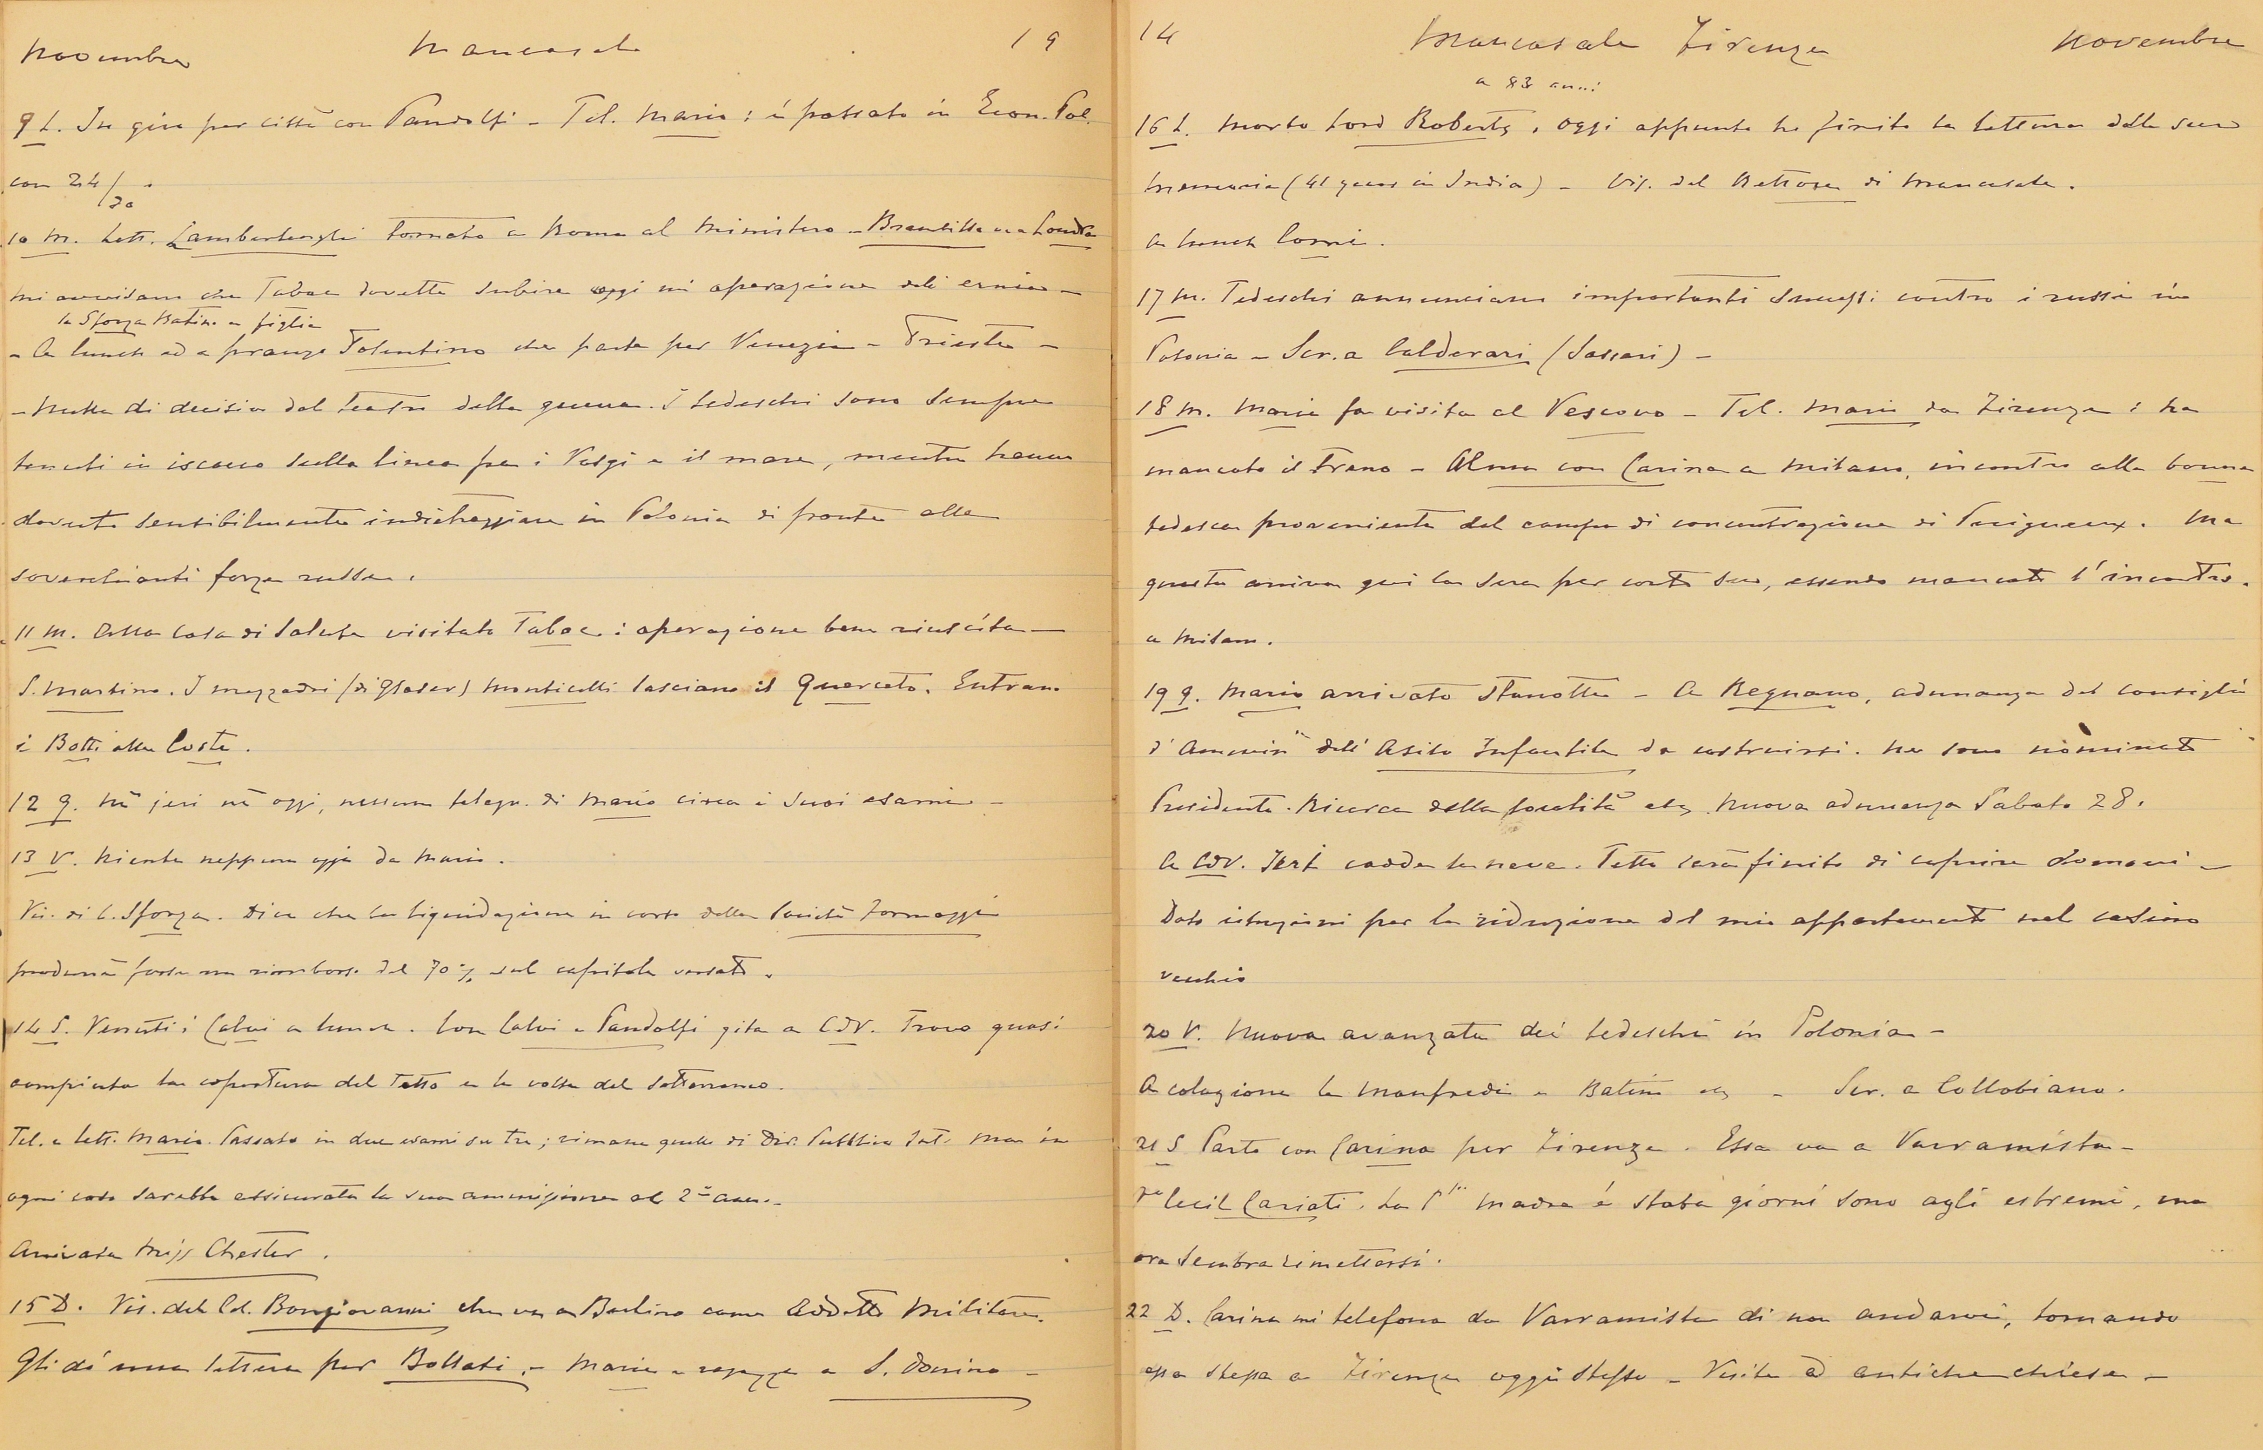 Novembre Mancasale 19
9 L. In giro per città con Pandolfi - Tel. Mario : è passato in Econ. Pol.
con 24/30.
10 M. Lett. Lambertenghi tornato a Roma al Ministero - Brambilla va a Londra
Mi avvisano che Tabac dovette subire oggi un operazione di ernia -
la Sforza Ratino e figlia
- A lunch ed a pranzo Tolentino che parte per Venezia - Trieste -
- Nulla di decisivo dal teatro della guerra. I tedeschi sono sempre
tenuti in iscacco sulla linea fra i Vosgi e il mare, mentre hanno
dovuto sensibilmente indietreggiare in Polonia di fronte alle
soverchianti forze russe.
11 M. Alla Casa di Salute visitato Tabac : operazione bene riuscita -
S. Martino. I mezzadri (di Glaser) Monticelli lasciano il Querceto. Entrano
i Botti alle Coste.
12 G. Nè jeri nè oggi, nessun telegr. di Mario circa i suoi esami -
13 V. Niente neppure oggi da Mario.
Vis. di C. Sforza. Dice che la liquidazione in corso della Società Formaggi
produrrà forse un rimborso del 70% sul capitale versato.
14 S. Venuti i Calvi a lunch. Con Calvi e Pandolfi gita a CdV. Trovo quasi
compiuta la copertura del Tetto e le volte del sotterraneo.
Tel. e lett. Mario. Passato in due esami su tre ; rimane quello di Dir. Pubblico Int. ma in
ogni caso sarebbe assicurata la sua ammissione al 2º anno.
Arrivata Miss Chester.
15 D. Vis. del Col. Bongiovanni che va a Berlino come Addetto Militare.
Gli dò una lettera per Bollati. - Maria e ragazze a S. Donino -
14 Mancasale Firenze Novembre
a 83 anni
16 L. Morto Lord Roberts. Oggi appunto ho finito la lettura delle sue
Memorie (41 years in India) - Vis. del Rettore di Mancasale.
A lunch Corni.
17 M. Tedeschi annunciano importanti successi contro i russi in
Polonia - Scr. a Calderari (Sassari) -
18 M. Maria fa visita al Vescovo - Tel. Mario da Firenze : ha
mancato il treno - Alma con Carina a Milano, incontro alla bonne
tedesca proveniente dal campo di concentrazione di Perigueux. Ma
questa arriva qui la sera per conto suo, essendo mancato l'incontro
a Milano.
19 G. Mario arrivato stanotte - A Regnano, adunanza del consiglio
d'Ammin. dell' Asilo Infantile da costruirsi. Ne sono nominato
Presidente. Ricerca della località etc. Nuova adunanza Sabato 28.
A CdV. Jeri cadde la neve. Tetto sarà finito di coprire domani -
Dato istruzioni per la riduzione del mio appartamento nel casino
vecchio
20 V. Nuova avanzata dei tedeschi in Polonia -
A colazione la Manfredi e Ratini etc - Scr. a Collobiano.
21 S Parto con Carina per Firenze. Essa va a Varramista -
Cecil Cariati. La madre è stata giorni sono agli estremi, ma
ora sembra rimettersi.
22 D. Carina mi telefona da Varramista di non andarvi, tornando
essa stessa a Firenze oggi stesso - Visite ad antiche chiese -